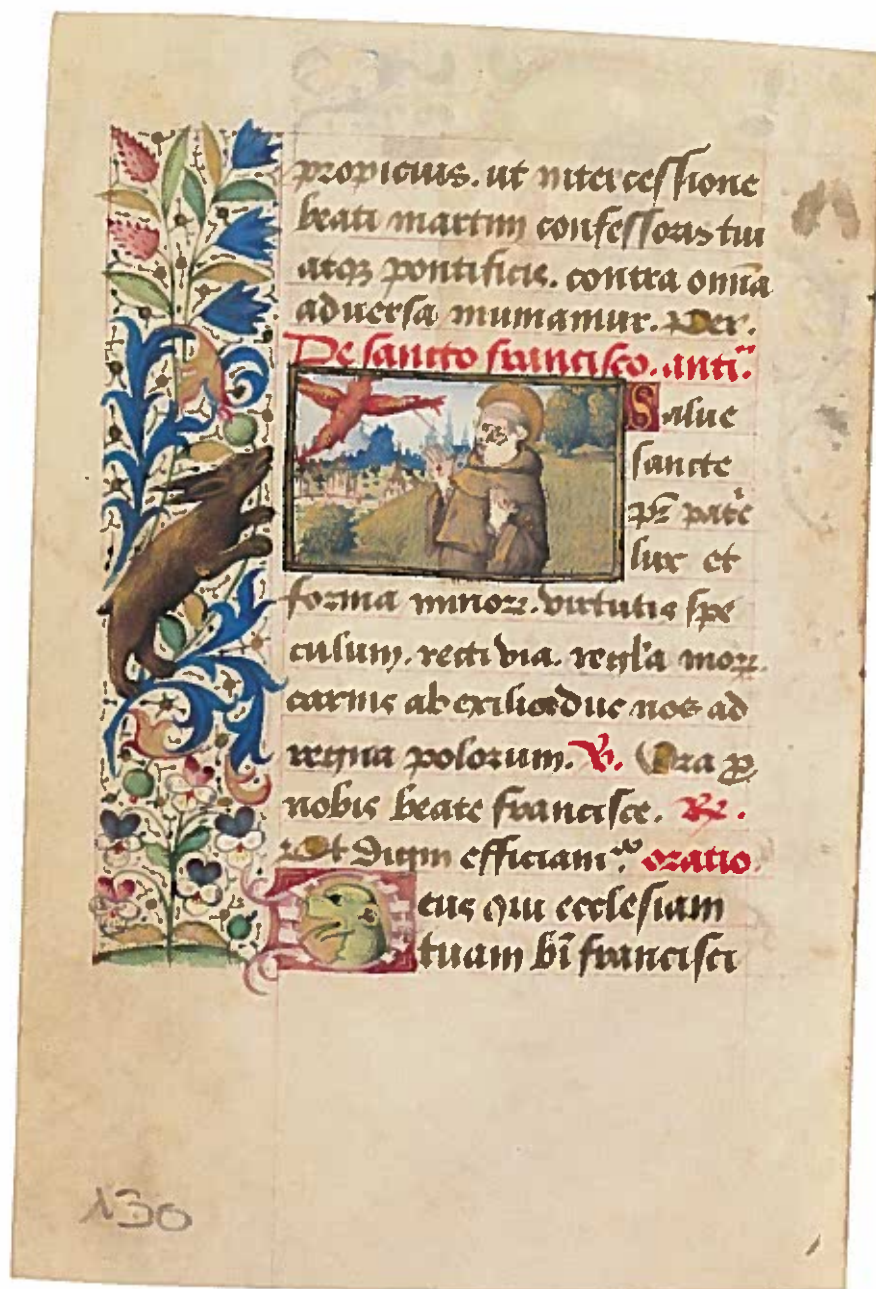 propicius. ut intercessione
beati martini confessoris tui
atqꝫ pontificis. contra om̄ia
aduersa muniamur. Per.
De sancto francisco. anti.
Salue
sancte
pr̄ patͥe
lux et
forma minoꝝ. virtutis spe
culum. recti via. regl'a moꝝ.
carnis ab exilio duc nos ad
regna polorum. ℣. Ora ꝓ
nobis beate francisce. ℟.
Ut digni efficiam᷑. oratio
Deus qui ecclesiam
tuam bī francisci
130